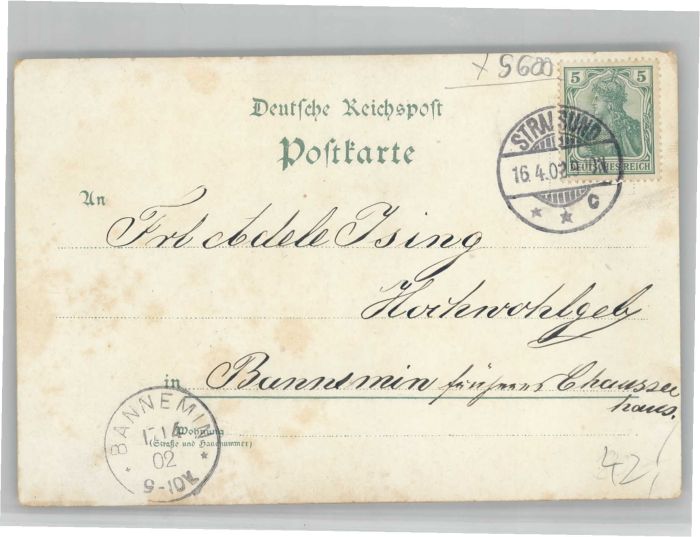 × 5600
5 5
DEUTSCHES REICH
Deutsche Reichspost
Postkarte
STRALSUND
16.4.02
c
An
Frl Adele Ising
Hochwohlgeb
in Bannemin früheres Chaussee
haus.
BANNEMIN
17.4
02
9-10V
Wohnung
(Straße und Hausnummer)
42